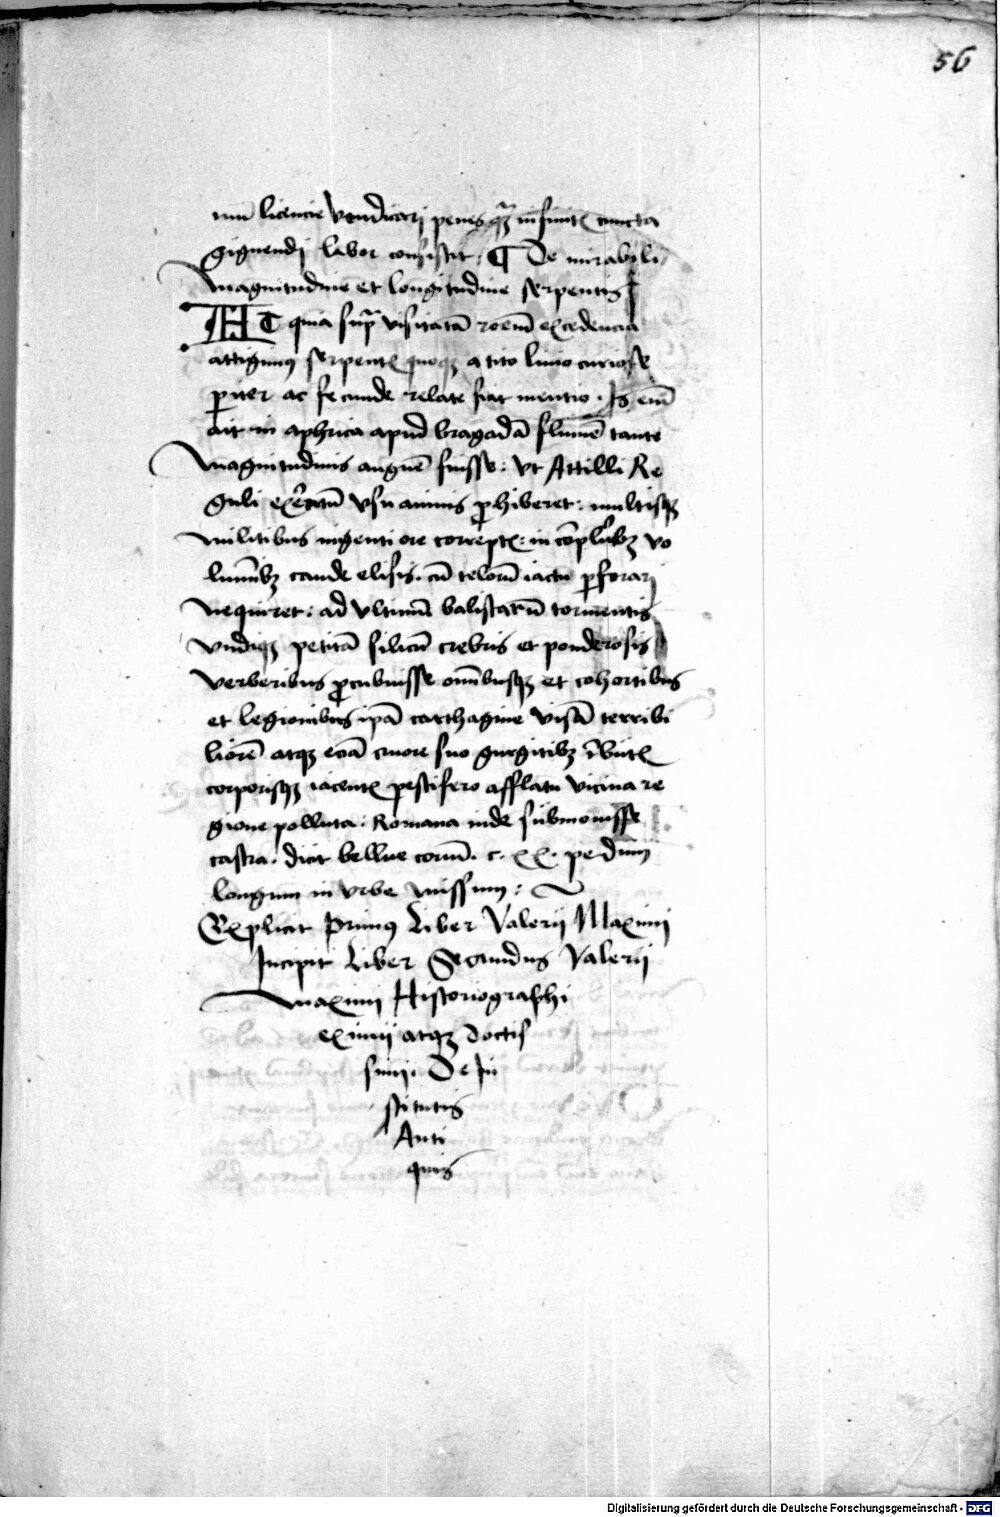 56
num licencie vendicari penes q̄ꝫ infinit̄ cuncta
gignendi labor consistit: ¶ De mirabili
magnitudine et longitudine serpentis
AT quia sup̄ visitatā roēm excedencia
attigimꝰ serpent̄ quoqꝫ a tito liuio curiose
ꝑiter ac fecunde relate fiat mentio. Is eīm
ait in aphrica apud bragadā flumē tante
magnitudinis anguē fuisse: vt Attilli Re
guli exercitū vsu amnis ꝓhiberet: multisqꝫ
militibus ingenti ore corrept̄: in cōpluribꝫ vo
luminibꝫ caude elisis. cū telorū iactu ꝑforari
nequiret: ad vltimū balistarū tormentis
vndiqꝫ petitā silicū crebris et ponderosis
verberibus ꝓcubuisse omībusqꝫ et cohortibus
et legionibus ipā carthagine visā terribi
liorē atqꝫ eciā cruore suo gurgitibꝫ ībut̄
corporisqꝫ iacent̄ pestifero afflatu vicina re
gione polluta: Romana inde submouisse
castra. dicit bellue coriū. c. xx. pedum
longum in vrbe missum:
Explicit Primꝰ Liber Valerij Maximi
Incipit Liber Secundus Valerij
maximi Historiographi
eximij atqꝫ doctis
simi. De In
stitutis
Anti
quis
Digitalisierung gefördert durch die Deutsche Forschungsgemeinschaft - DFG